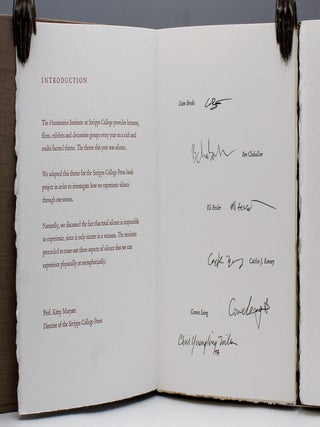 INTRODUCTION
The Humanities Institute at Scripps College provides lectures,
films, exhibits and discussion groups every year on a rich and
multi-faceted theme. The theme this year was silence.
We adopted this theme for the Scripps College Press book
project in order to investigate how we experience silence
through our senses.
Naturally, we discussed the fact that total silence is impossible
to experience, since it only occurs in a vacuum. The students
proceeded to tease out those aspects of silence that we can
experience physically or metaphorically.
Prof. Kitty Maryatt
Director of the Scripps College Press
Liam Brooks
Ben
Eli
Caitlin J.
Connie Leung
TA